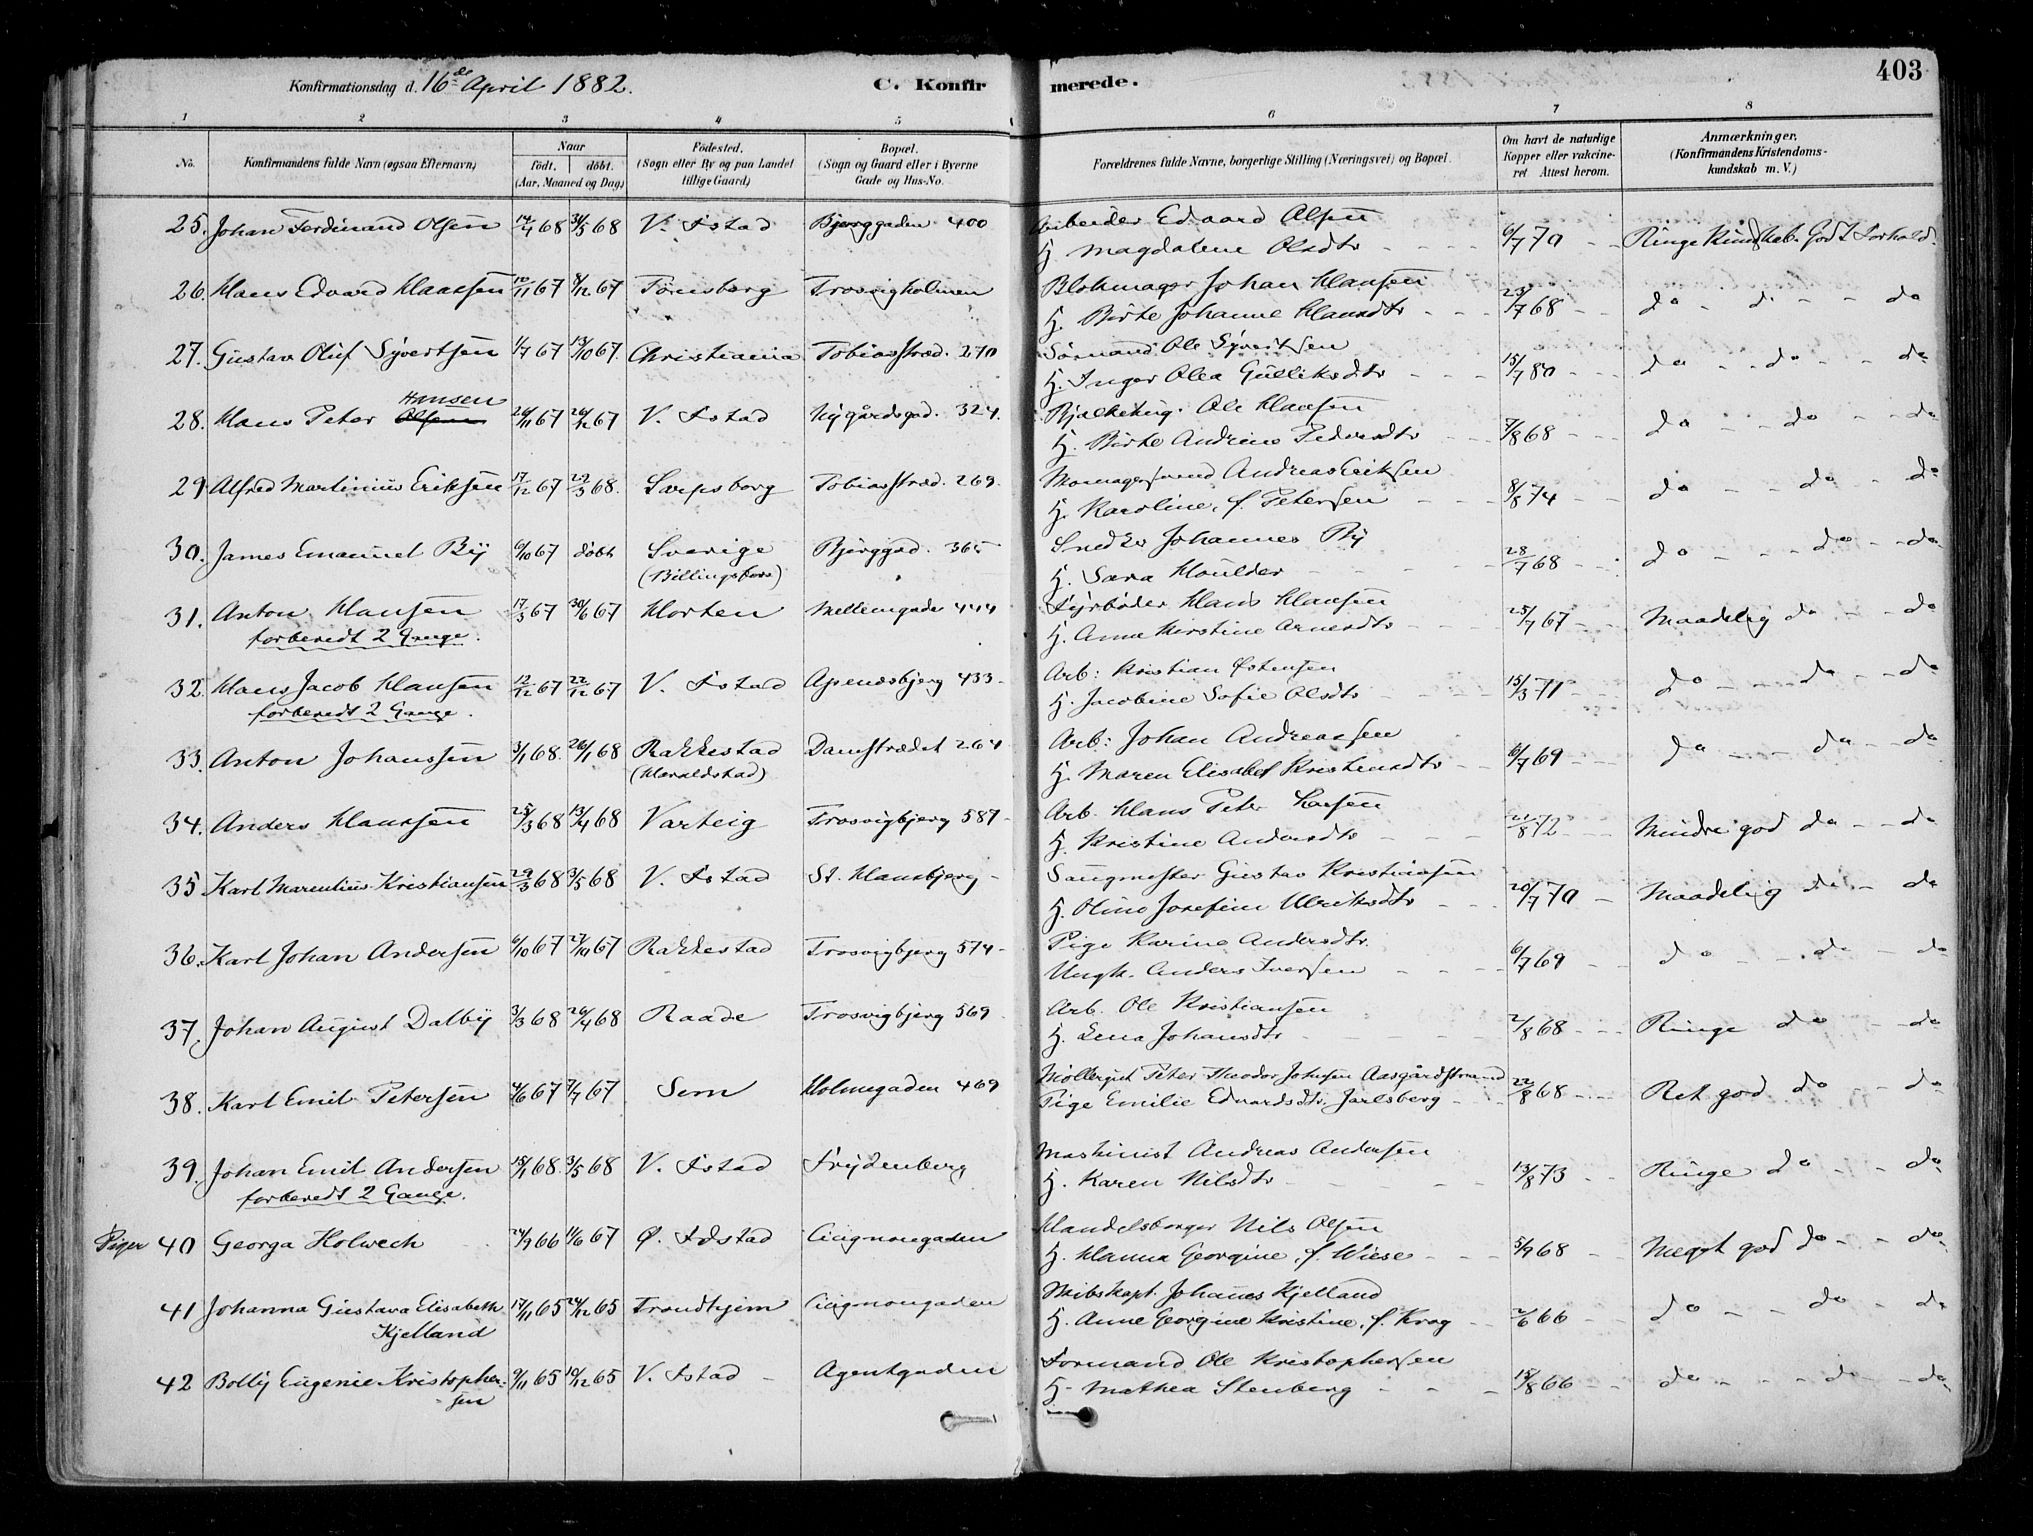 403
Konfirmationsdag d. 16de April 1882. C. Konfirmerede.
1 2 3 4 5 6 7 8
No. Konfirmandens fulde Navn (ogsaa Efternavn) Naar født. døbt. (Aar, Maaned og Dag) Fødested. (Sogn eller By og paa Landet tillige Gaard) Bopæl. (Sogn og Gaard eller i Byerne Gade og Hus-No. Forældrenes fulde Navne, borgerlige Stilling (Næringsvei) og Bopæl. Om havt de naturlige Kopper eller vakcineret Attest herom. Anmærkninger. (Konfirmandens Kristendomskundskab m. V.)
25. Johan Ferdinand Olsen 14/4 68 31/5 68 V. Fstad Bjerggaden 400 Arbeider Edvard Olsen 6/7 70 Ringe Kundskab. God Forhold.
H. Magdalene Olsdtr
26. Hans Edvard Hanssen 10/11 67 8/12 67 Tønsberg Trosvigholmen Blokmager Johan Hansen 23/7 68 do do do
H. Birte Johanne Hansdtr
27. Gustav Oluf Syvertsen 1/7 67 13/10 67. Christiania Tobiasstræd. 270 Sømand Ole Syvertsen 15/7 80 do do do
H. Inger Olea Gulliksdtr
28. Hans Peter Hansen 26/11 67 26/12 67 V. Fstad Nygårdsgad. 324. Bjælkehug. Ole Hansen 7/8 68 do do do
H. Birte Andrine Pedersdtr
29 Alfred Martinius Eriksen 17/12 67 29/3 68. Sarpsborg Tobiasstræd. 269. Andreas Eriksen 8/8 74 do do do
H. Karoline, f. Petersen
30. James Emanuel By 6/10 67 døbt Sverige (Billingsfors) Bjerggad. 365 Snedker Johannes By 28/7 68 do do do
H. Sara Houlder
31. Anton Hansen 17/3 67 30/6 67 Horten Mellemgaden 444 Fyrbøder Hans Hansen 25/7 67 Maadelig do do
forberedt 2 Gange. H. Anna Kirstine Arnesdtr
32. Hans Jacob Hansen 12/12 67 22/12 67 V. Fstad Apenæsbjerg 433 Arb: Kristian Østensen 15/3 71 do do do
forberedt 2 Gange. H. Jacobine Sofie Olsdtr
33. Anton Johanssen 3/1 68. 26/1 68 Rakkestad (Haraldstad) Damstrædet 264 Arb: Johan Andreassen 6/7 69 do do do
H. Maren Elisabet Kristensdtr
34. Anders Hanssen 25/3 68 13/4 68 Varteig Trosvigbjerg 587 Arb. Hans Peter Larsen 21/8 72 Mindre god do do
H. Kristine Andersdtr
35 Karl Marentius Kristiansen 29/3 68 3/5 68 V. Fstad St. Hansbjerg Saugmester Gustav Kristiansen 20/7 70 Maadelig do do
H. Oline Josefine Ulriksdtr
36. Karl Johan Andersen 6/10 67 27/10 67 Rakkestad Trosvigbjerg 574 Pige Karine Andersdtr. 6/7 69 do do do
Ungk. Anders Iversen
37. Johan August Dalby 3/3 68 26/4 68 Raade Trosvigbjerg 569 Arb. Ole Kristiansen 2/8 68 Ringe do do
H. Lena Johansdtr
38. Karl Emil Petersen 4/6 67 7/7 67 Sem Holmegaden 469 Møllergut Peter Theodor Johnsen Aasgårdstrand 22/8 68 Ret god do do
Pige Emilie Edvardsdtr. Jarlsberg
39. Johan Emil Andersen 15/1 68. 3/5 68 V. Fstad Frydenberg Maskinist Andreas Andersen 13/8 73 Ringe do do
forberedt 2 Gange. H. Karen Nilsdtr
Piger 40 Georga Holwech 24/9 66 11/6 67 Ø. Fdstad Cicignongaden Handelsborger Nils Olsen 5/9 68 Meget god do do
H. Hanna Georgine, f. Wiese
41 Johanna Gustava Elisabeth Kjelland 17/11 65 24/12 65 Trondhjem Cicignongaden Skibskapt. Johanes Kjelland 2/6 66 do do do
H. Anne Georgine Kristine, f. Krog
42 Bolly Eugenie Kristophersen 9/11 65 10/12 65 V. Fstad Agentgaden Formand Ole Kristophersen 18/8 66 do do do
H. Mathea Stenberg